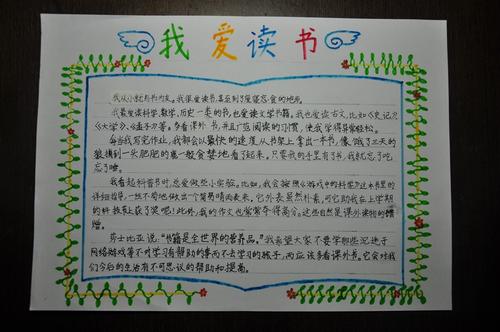 我爱读书
我从小就与书为友。我很爱读书,甚至到了废寝忘食的地步。
我最爱读科学、数学、历史一类的书,也爱读文学书籍。我也爱读古文,比如《史记》
《大学》、《孟子》等。多看课外书,并且广泛阅读的习惯,使我学得异常轻松。
每当我写完作业,我都会以最快的速度从书架上拿出一本书,像饿了三天的
狼摸到一头肥肥的鹿一般贪婪地看了起来。只要我的手里有了书,我就忘了吃
忘了喝。
我看起科普书时,总爱做些小实验。比如,我会按照《游戏中的科学》这本书里的
详细指导,一丝不苟地做出一个简易晴雨表来。它外表虽然朴素,可它助我在上学期
的科技赛上获了奖呢!此外,我的作文也常常夺得高分。这些自然是课外读物的
赠。
莎士比亚说:“书籍是全世界的营养品。”我希望大家不要学那些沉迷于
网络游戏等不对学习有帮助的事而不去学习的孩子,而应该多看课外书。它会对我
们今后的生活有不可思议的帮助和提高。